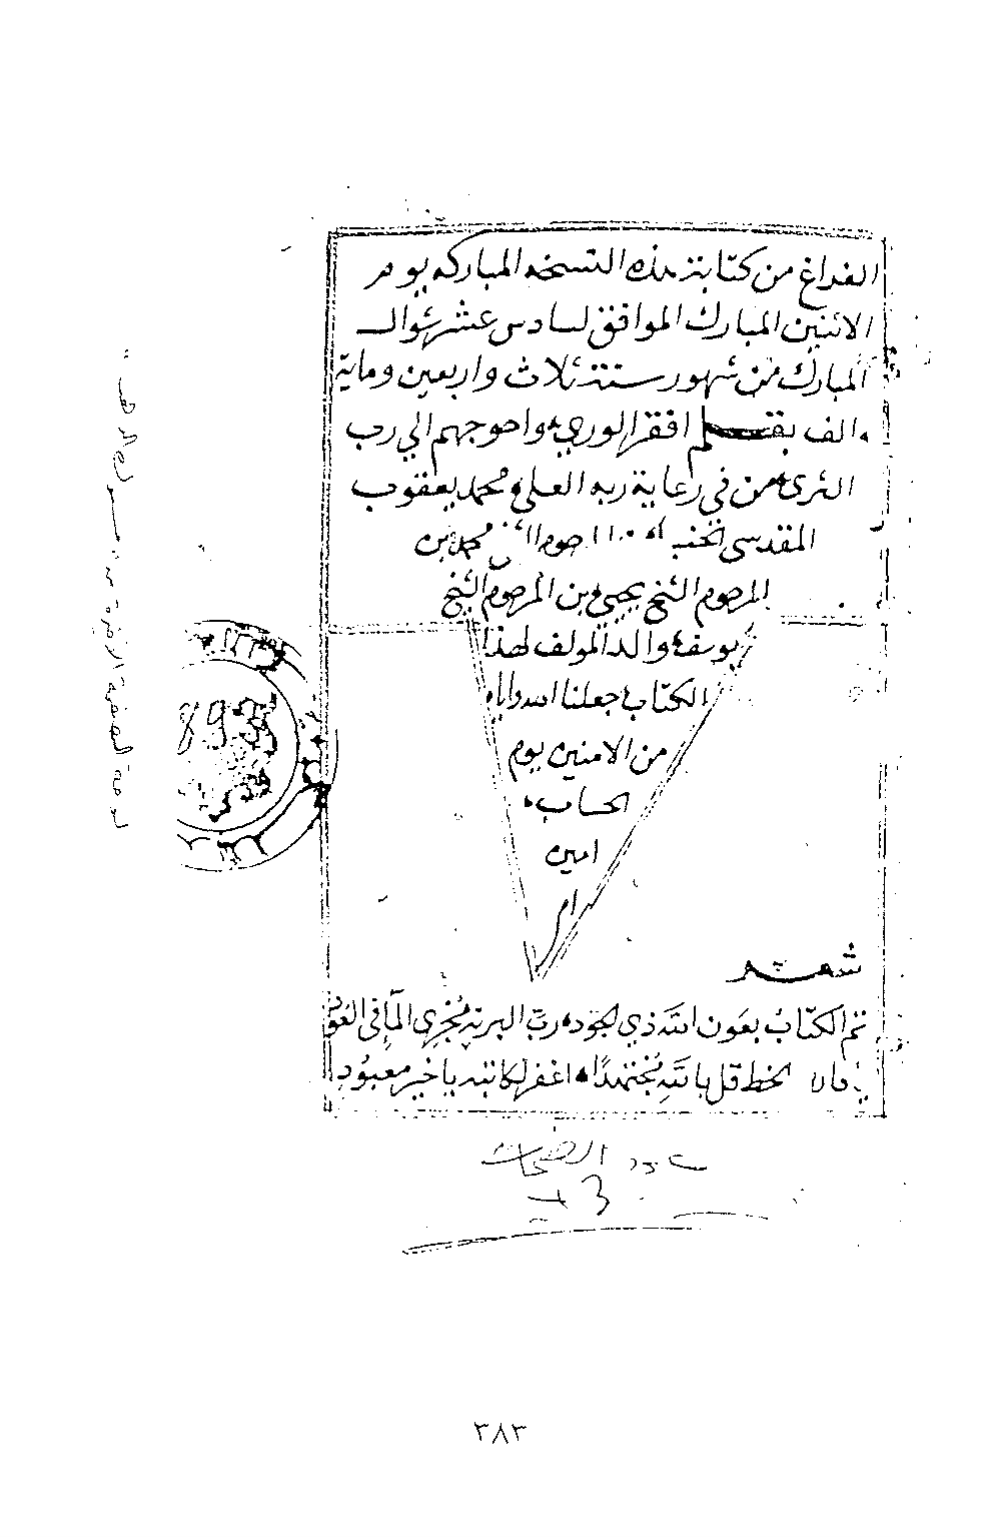 الفراغ من كتابة هذه النسخه المباركه يوم
الاثنين المبارك الموافق لسادس عشر شوال
المبارك من شهور سنة ثلاث واربعين وماية
والف بقلم افقر الوري واحوجهم الي رب
الثرى من في رعاية ربه العلي محمد يعقوب
المقدسي محمد بن
المرحوم الشيخ يحيي بن المرحوم الشيخ
يوسف والد المولف لهذا
الكتاب جعلنا الله واياه
من الامنين يوم
الحساب
امين
شعر
تم الكتاب بعون الله ذي الجود رب البرية مجري الما في العود
الخط قل بالله مجتهدًا اغفر لكاتبه يا خير معبود
عدد الصفحات
لوحة الصفحة الاخيرة من
893
٣٨٣